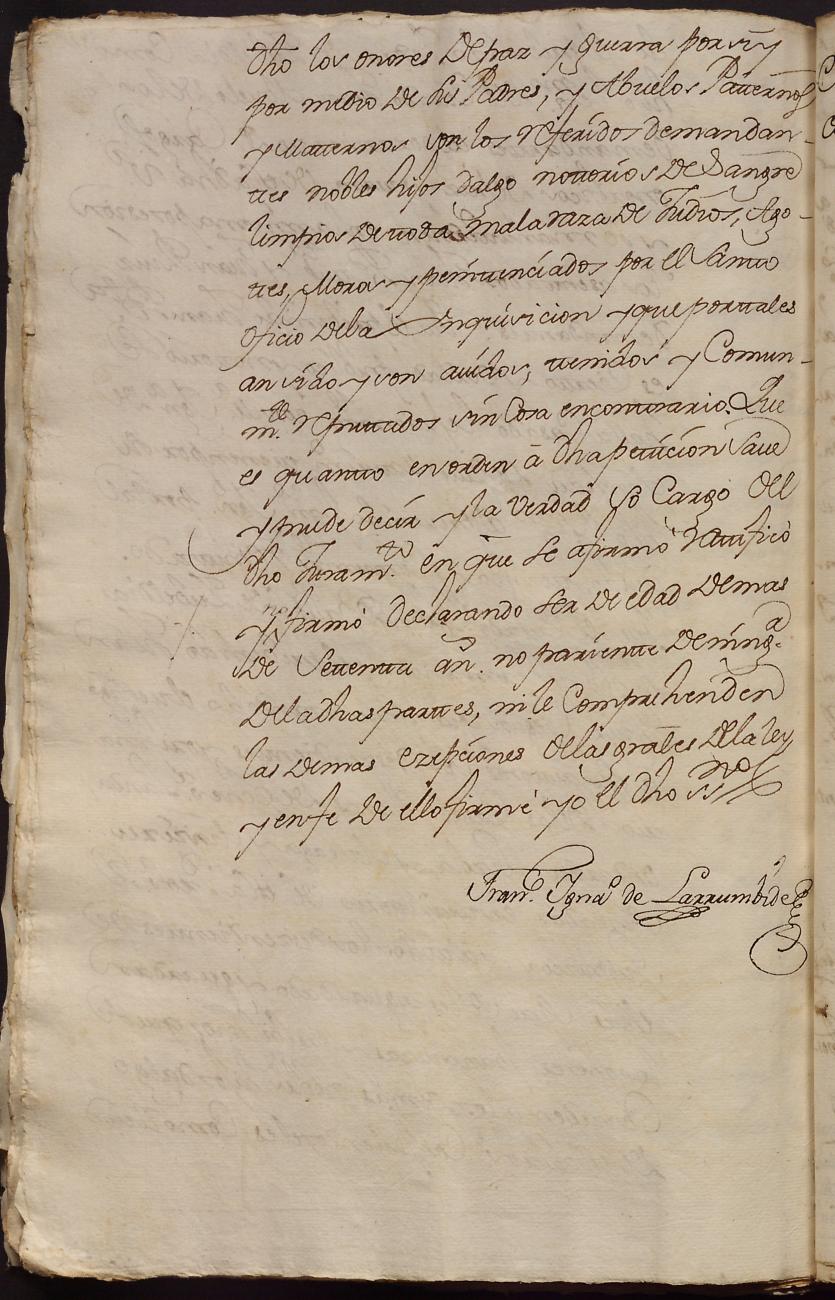 dho los onores de paz y guerra por si y
por medio de sus Padres, y Abuelos Paternos
y Maternos son los referidos demandan-
tes nobles hijos dalgo notorios de Sangre
limpios de toda mala raza de Judios, Ago-
tes, Moros y penitenciados por el Santo
oficio de la Inquisicion y que por tales
an sido y son auidos, tenidos y Comun-
mte reputados sin Cosa encontrario. Que
es quanto en orden â dha peticion Save
y puede decir y la Verdad so Cargo del
dho Juramto en que se afirmó ratificó
y no firmó declarando ser de edad de mas
de Setenta añ. no pariente de ninga
de la dhas partes, ni le Comprehenden
las demas ezepciones de las grales de la ley
y en fe de ello firmé yo el dho ssno
Frano Ignao de Larrumbide